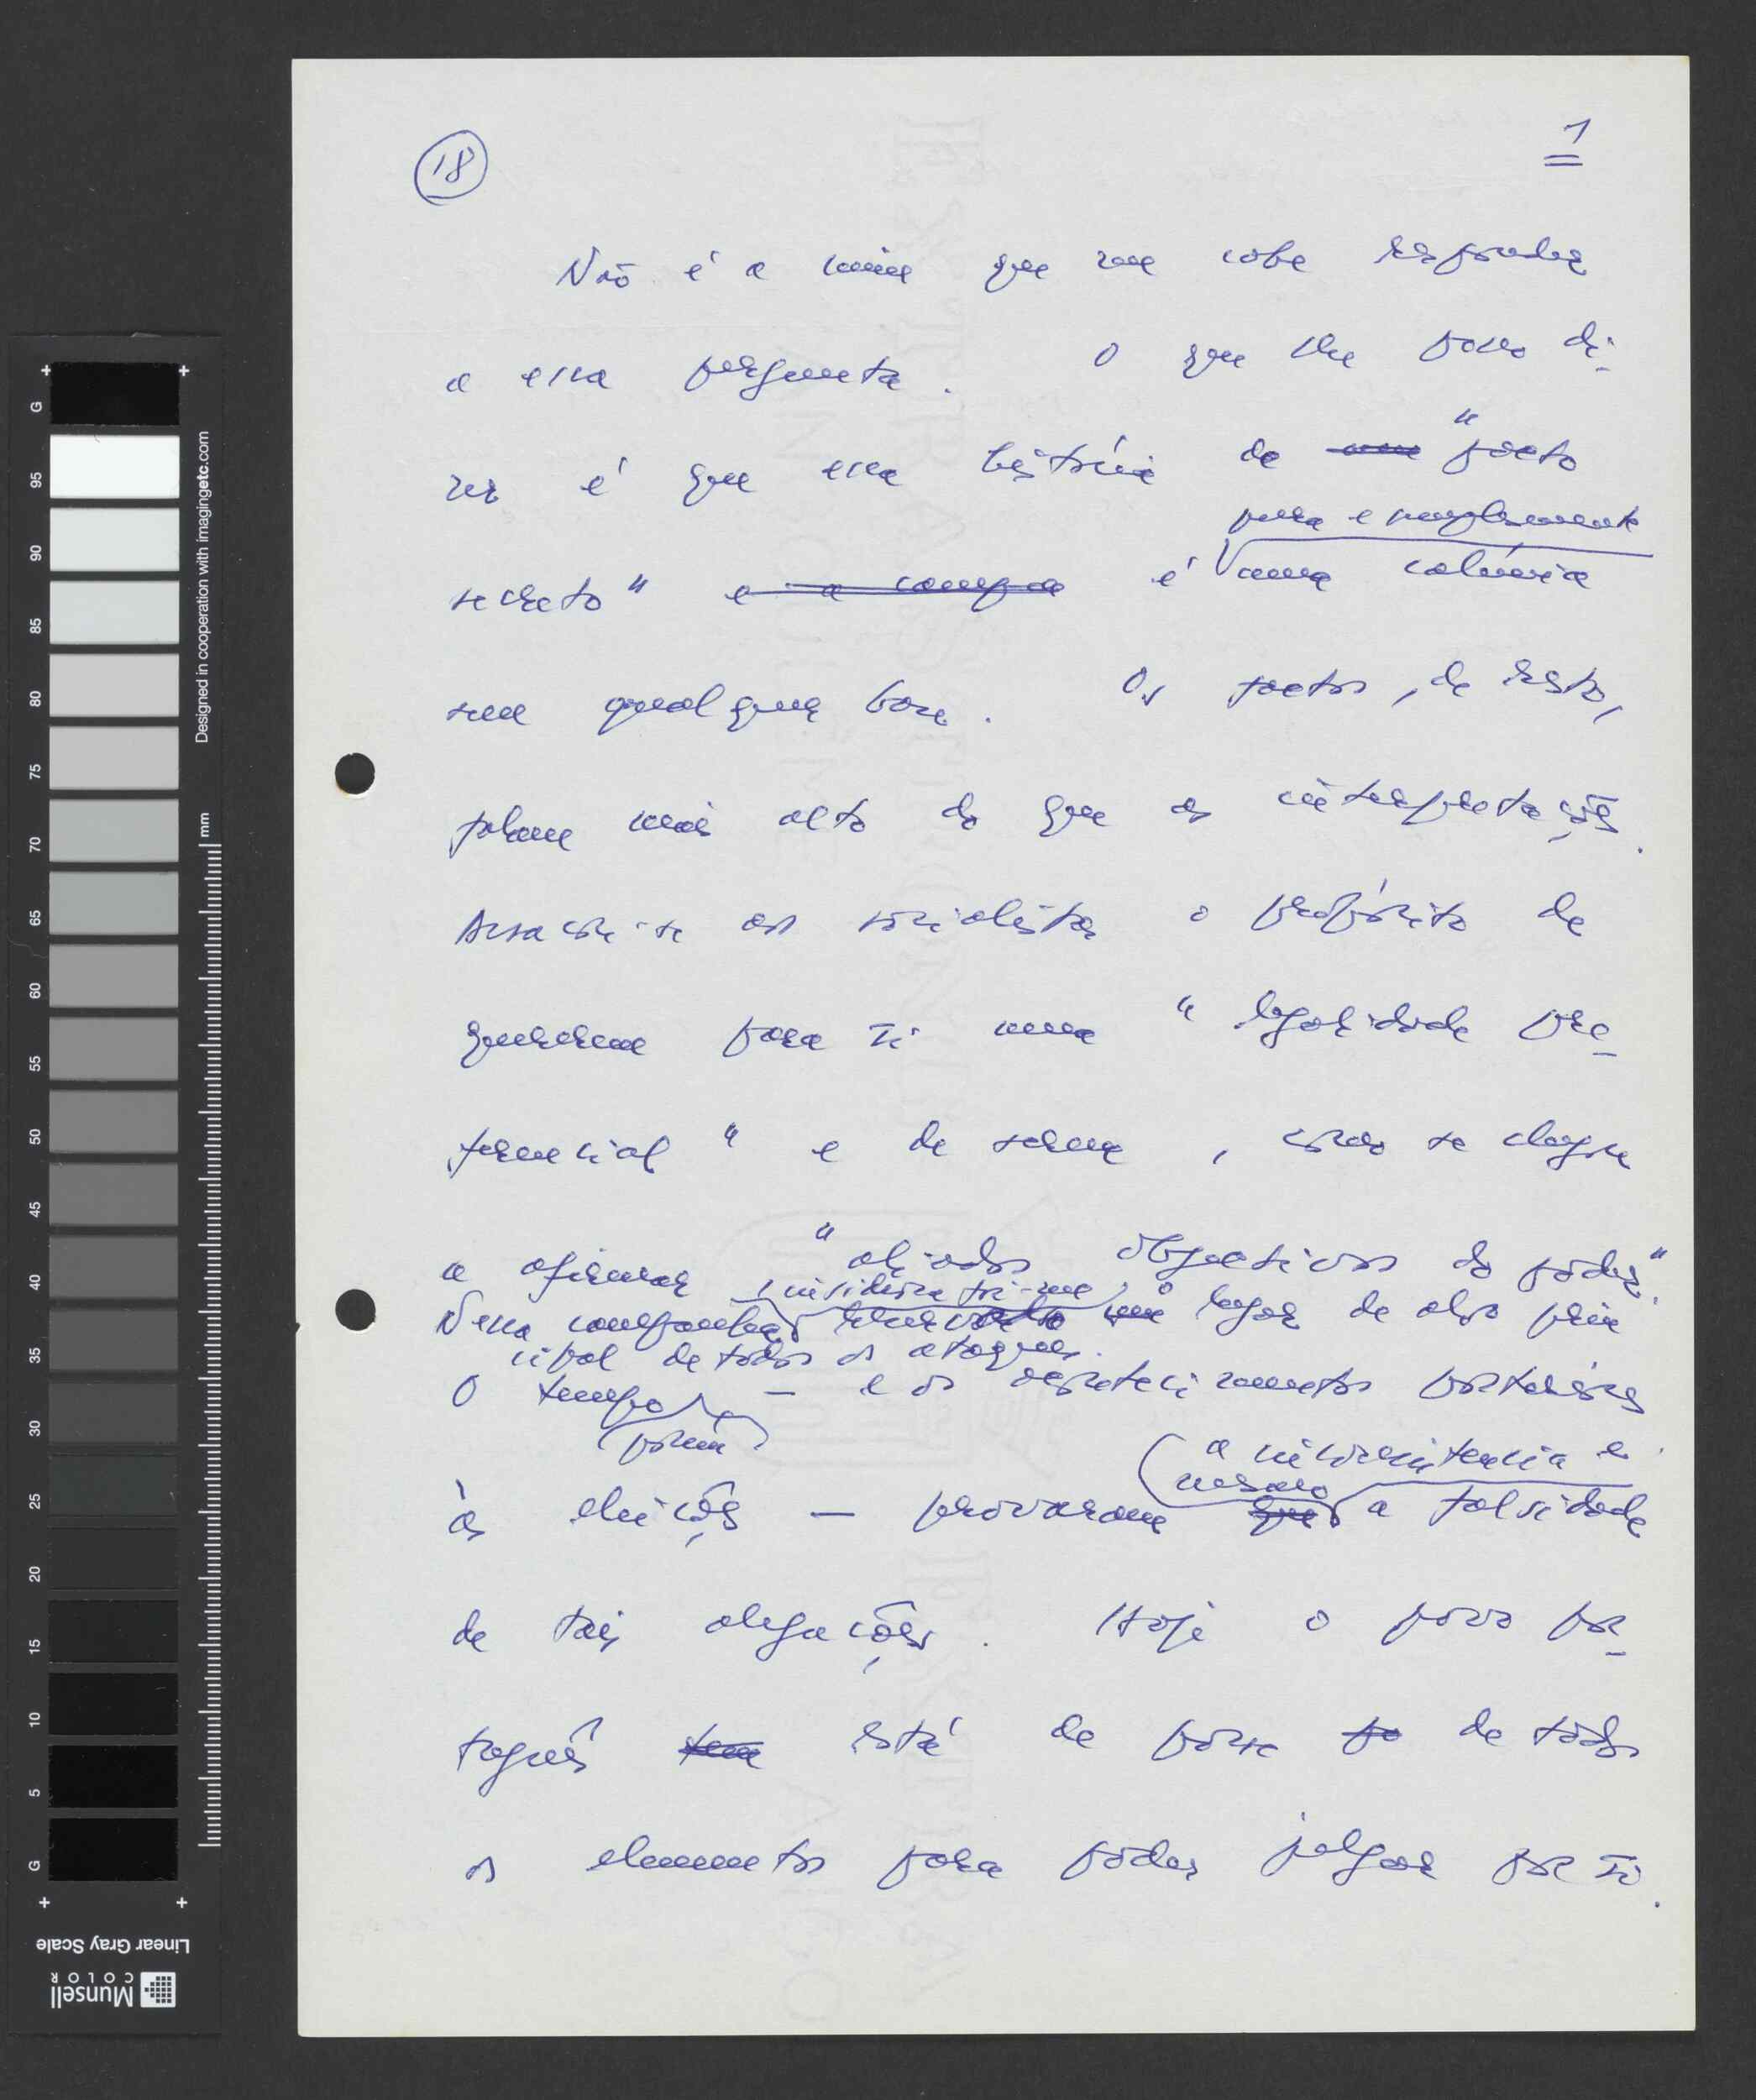 18
1
Não é a mim que me cabe responder
a essa pergunta. O que lhe posso di-
zer é que essa história de um "pacto
pura e simplesmente
secreto" e a campa é uma calúnia
sem qualquer base. Os factos, de resto,
falam mais alto do que as interpretações.
Assaca-se aos socialistas o propósito de
quererem para si uma "legalidade pre-
ferencial" e de serem, como se chegou
a afirmar "aliados objectivos do poder".
insidiosa foi-me
Nessa campanha o lugar de alvo prin
cipal de todos os ataques.
O tempo — e os acontecimentos posteriores
porém
a inconsistência e
mesmo
às eleições — provaram que a falsidade
de tais alegações. Hoje o povo por-
tuguês tem está de posse de todos
os elementos para poder julgar por si.
G
95
90
85
80
75
70
65
60
55
50
45
40
35
30
25
20
15
10
5
G
Designed in cooperation with imagingetc.com
mm
Linear Gray Scale
Munsell
COLOR